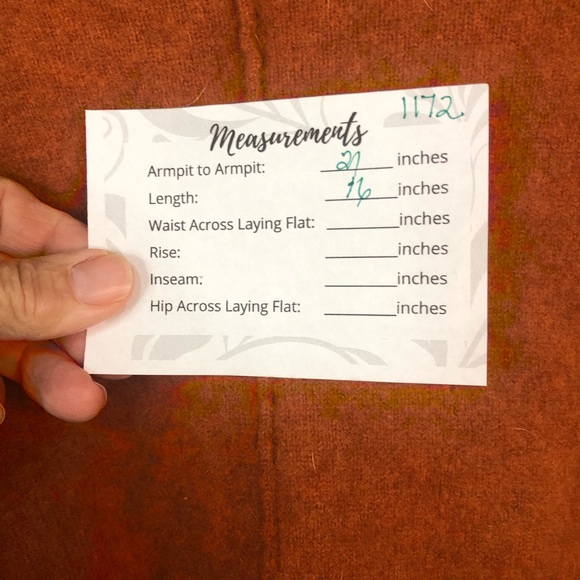 1172.
Measurements
Armpit to Armpit: inches
Length: 16 inches
Waist Across Laying Flat: inches
Rise: inches
Inseam: inches
Hip Across Laying Flat: inches